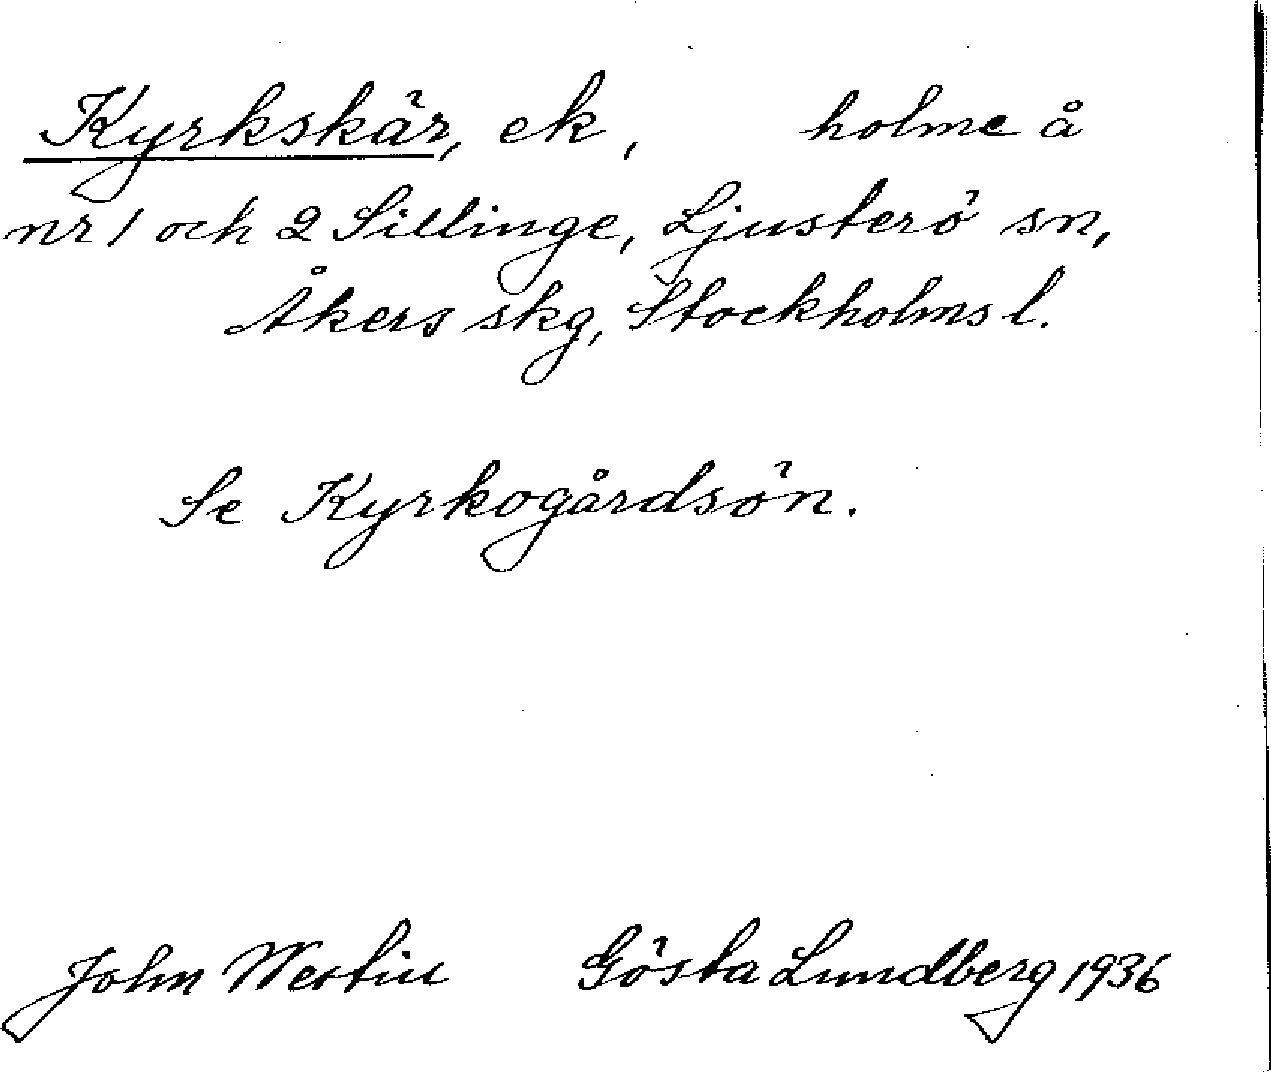 Kyrkskär, ek, holme å
nr 1 och 2 Sillinge, Ljusterö sn,
Åkers skg, Stockholms l.
Se Kyrkogårdsön.
John Westin Gösta Lundberg 1936